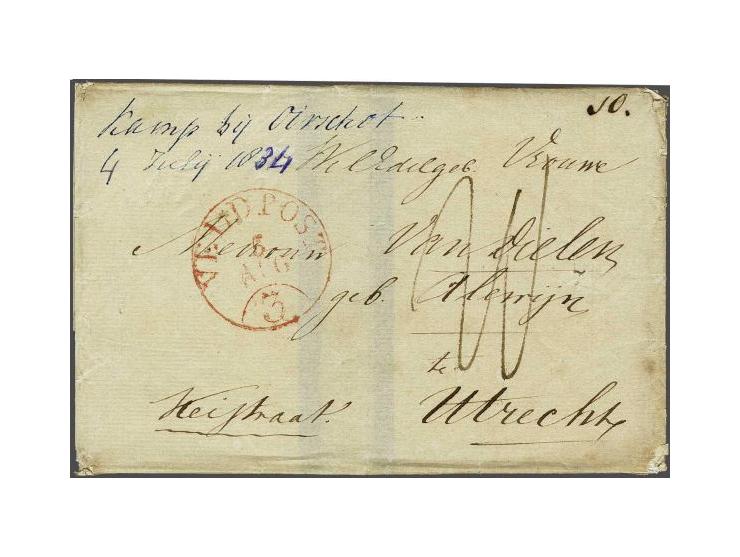 10.
Kamp bij Oirschot
4 Julij 1834
WelEdelgeb. Vrouwe
VELDPOST
5
AUG
3
Mevrouw Van Dielen
geb. Alewijn
te
Utrecht
Heistraat.